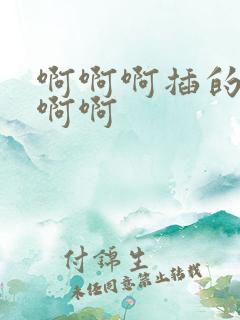 啊啊啊插的
啊啊
付锦生
未经同意禁止转载